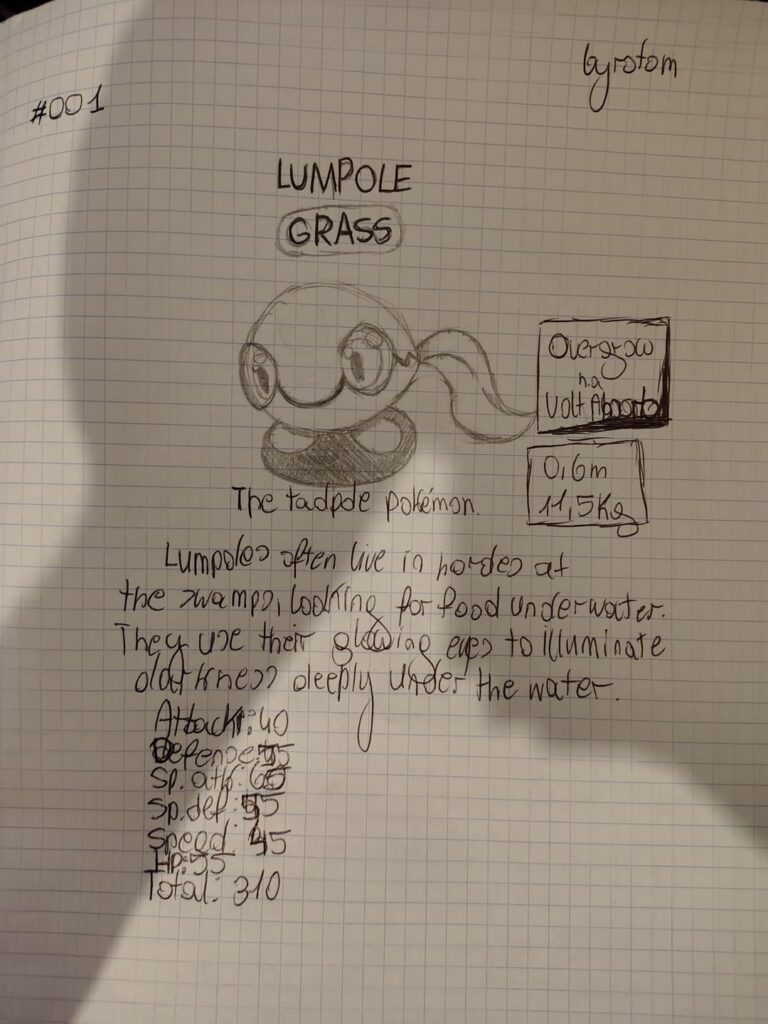 Gyrotom
#001
LUMPOLE
GRASS
Overgrow
h.a
Volt Absorb
0,6m
11,5Kg
The tadpole pokémon.
Lumpoles often live in hordes at
the swamps, looking for food underwater.
They use their glowing eyes to illuminate
darkness deeply under the water.
Attack: 40
Defense: 55
Sp. atk: 60
Sp. def: 55
Speed: 45
HP: 55
Total: 310